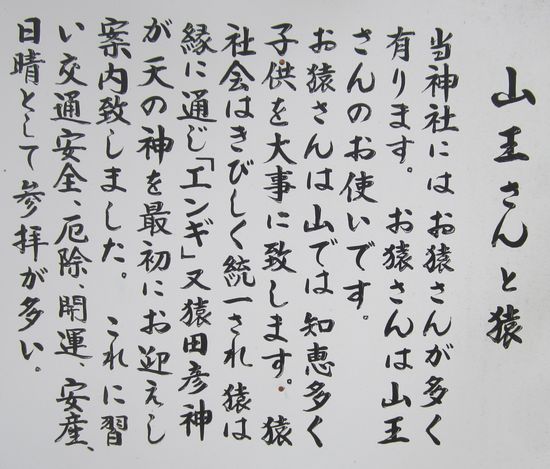 山王さんと猿
当神社にはお猿さんが多く
有ります。 お猿さんは山王
さんのお使いです。
お猿さんは山では知恵多く
子供を大事に致します。猿
社会はきびしく統一され猿は
縁に通じ「エンギ」又猿田彦神
が天の神を最初にお迎えし
案内致しました。 これに習
い交通安全、厄除、開運、安産、
日晴として参拝が多い。